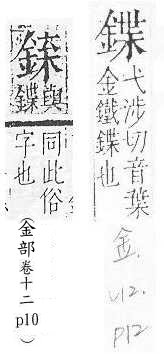 鍱
弋涉切音葉
金鐵鍱也
金.
V12.
P12
與
鍱
同此俗
字也
(金部卷十二
p10)